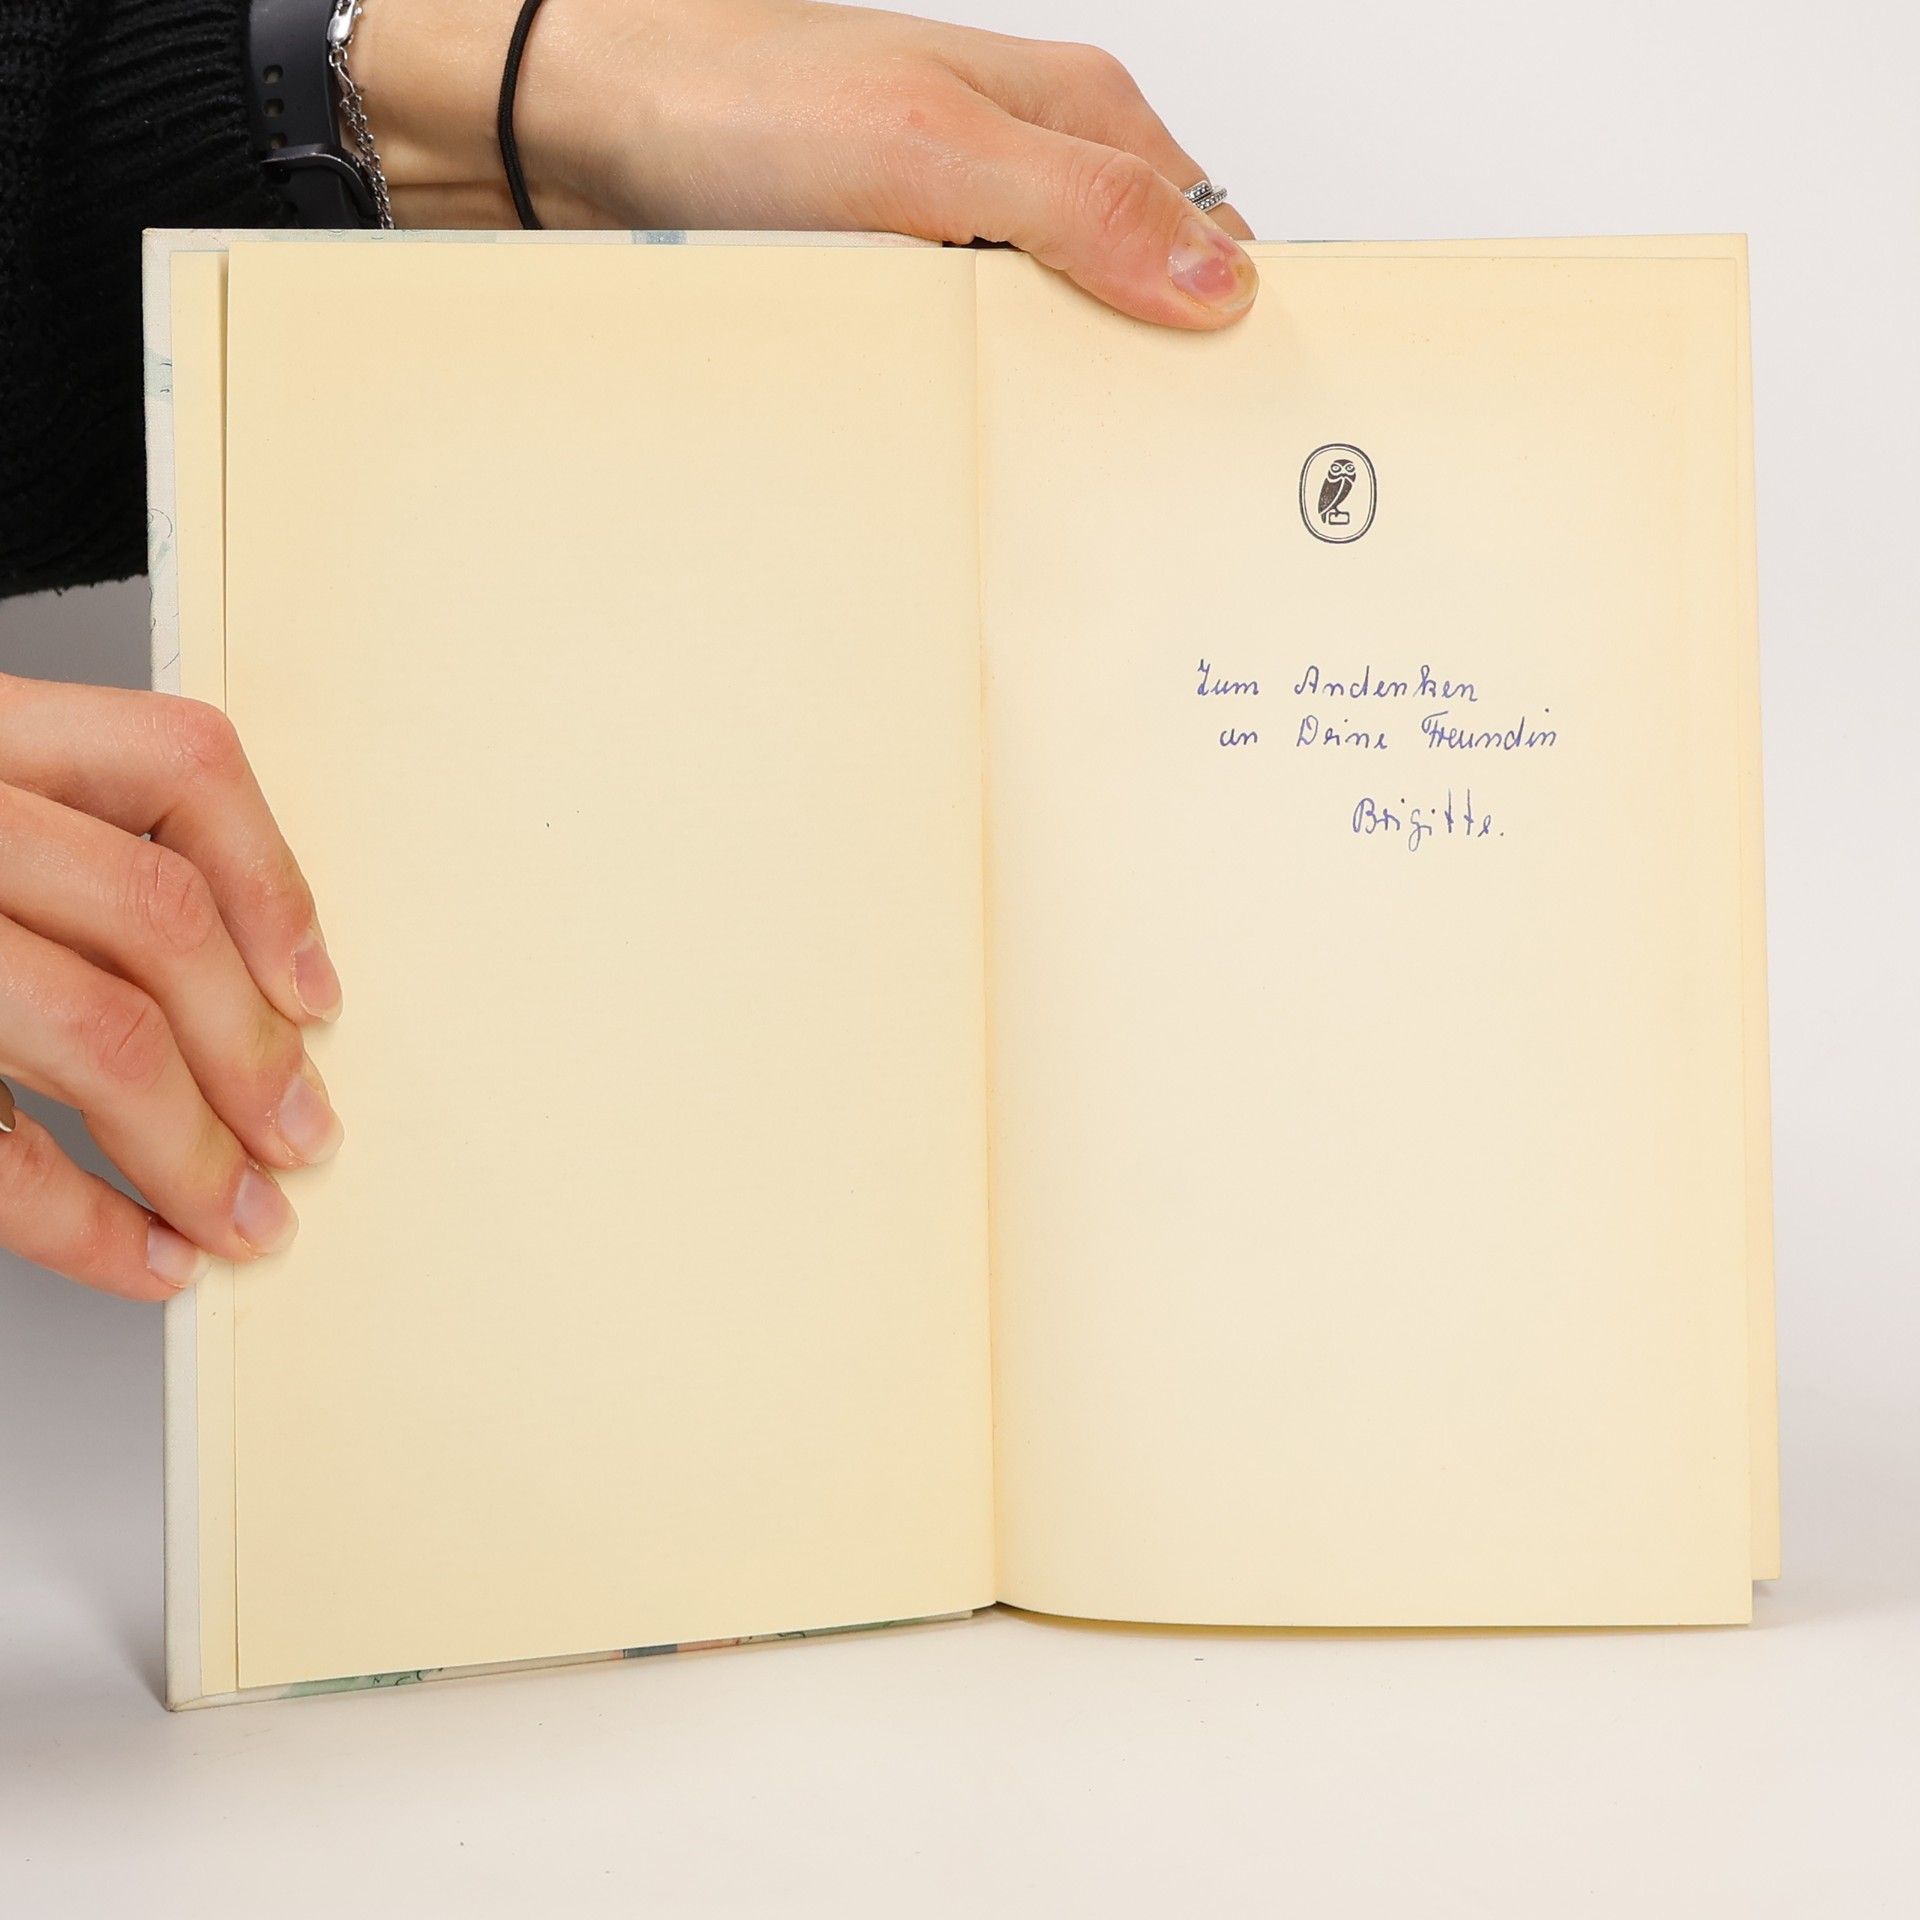 Zum Andenken
an Deine Freundin
Brigitte.